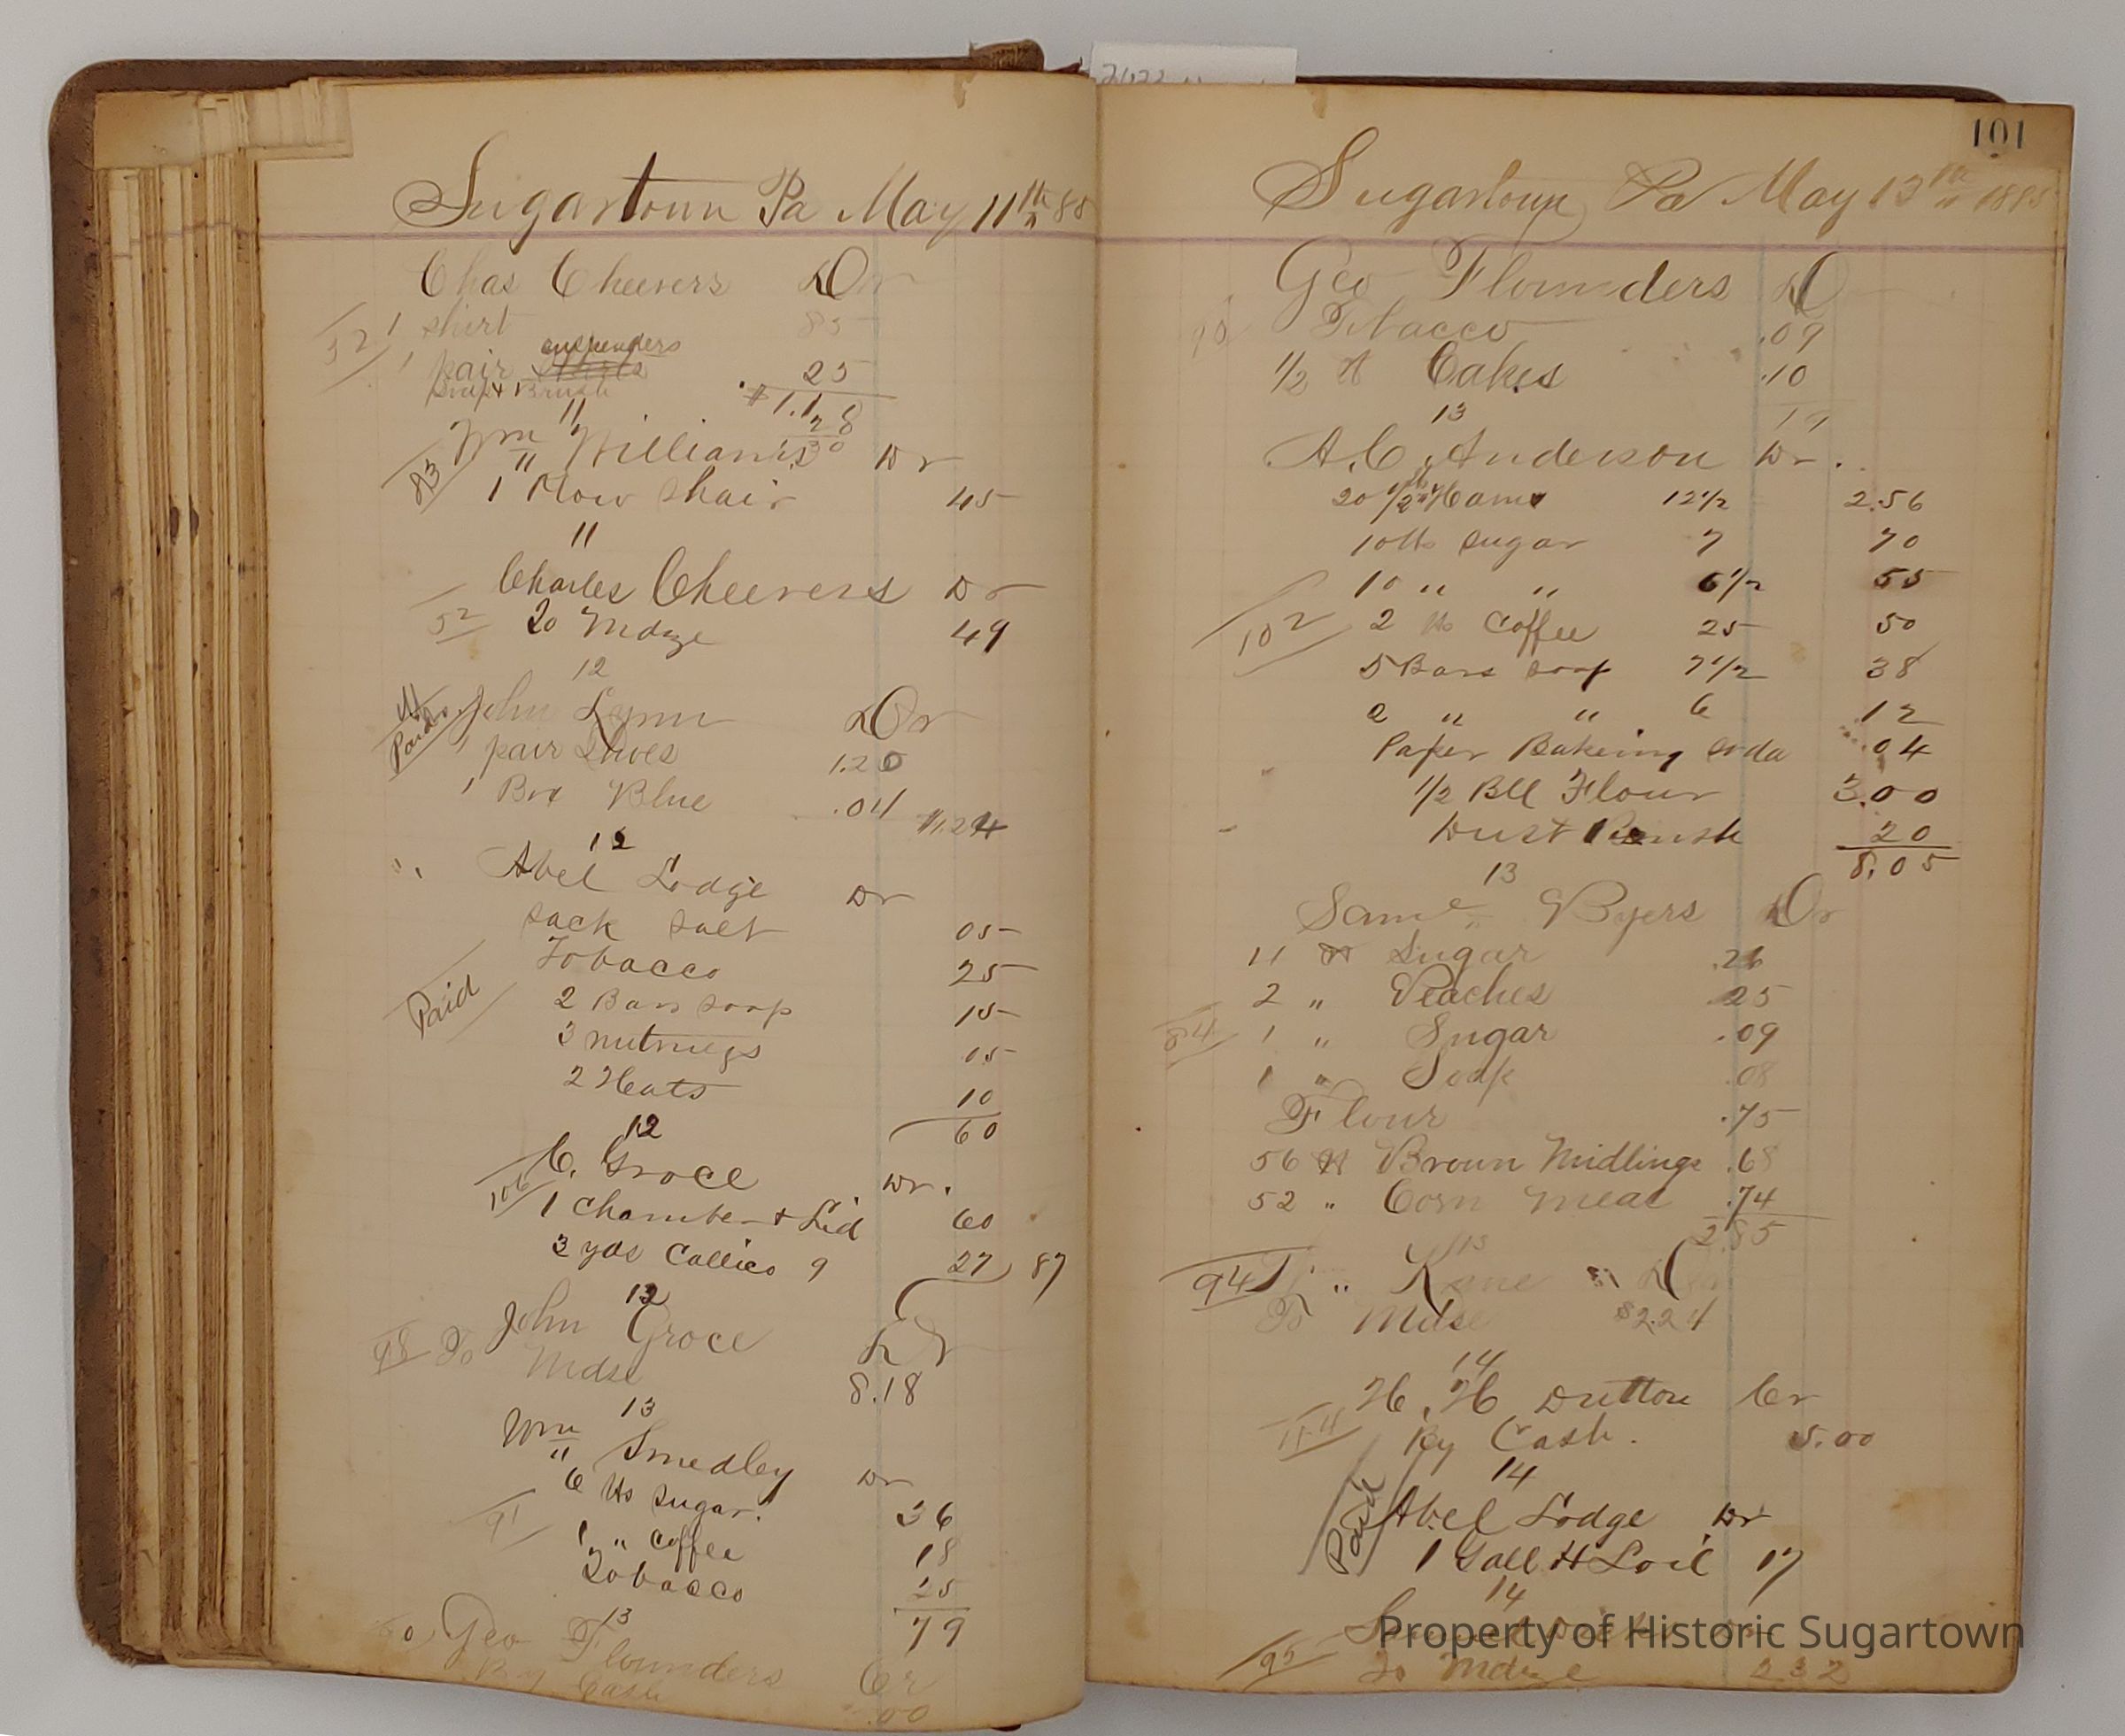 Sugartown Pa May 11th 88
Chas Cheevers Dr
52 1 shirt 85
1 pair suspenders 25
Soap & Brush
$1.18
11
83 Wm Williams Dr
1 Plow Shair 45
11
Charles Cheevers Dr
52 To Mdze 49
12
Paid John Lynn Dr
1 pair Shoes 1.20
1 Box Blue .04 $1.24
12
Abel Lodge Dr
sack salt 05
Tobacco 25
Paid 2 Bars soap 15
3 nutmegs 05
2 Hats 10
60
12
C. Groce Dr.
106 1 Chamber & Lid 60
3 yds Callico 9 27 87
12
John Groce Dr
98 To Mdse 8.18
13
Wm Smedley Dr
6 lbs Sugar 36
91 1 " Coffee 18
Tobacco 25
79
13
Geo Flounders Cr
By Cash .00
101
Sugartoun Pa May 13th 1888
Geo Flounders Dr
90 Tobacco .09
1/2 lb Cakes .10
19
13
A.C. Anderson Dr.
20 1/2 lb Hams 12 1/2 2.56
10 lbs Sugar 7 70
10 " " 6 1/2 55
102 2 lbs Coffee 25 50
5 Bars soap 7 1/2 38
2 " " 6 12
Paper Bakeing soda .04
1/2 Bll Flour 3.00
Dust Brush 20
8.05
13
Saml Byers Dr
11 lb Sugar .26
2 " Peaches 25
84 1 " Sugar .09
1 " Soap .08
Flour .75
56 lb Broun Midlings .68
52 " Corn Meal .74
2.85
13
94 " Kane Dr
To Mdse $2.24
14
H. H. Dutton Cr
114 By Cash. 5.00
14
Paid Abel Lodge Dr
1 Gall H L oil 17
14
95 To Mdze 2 32
Property of Historic Sugartown